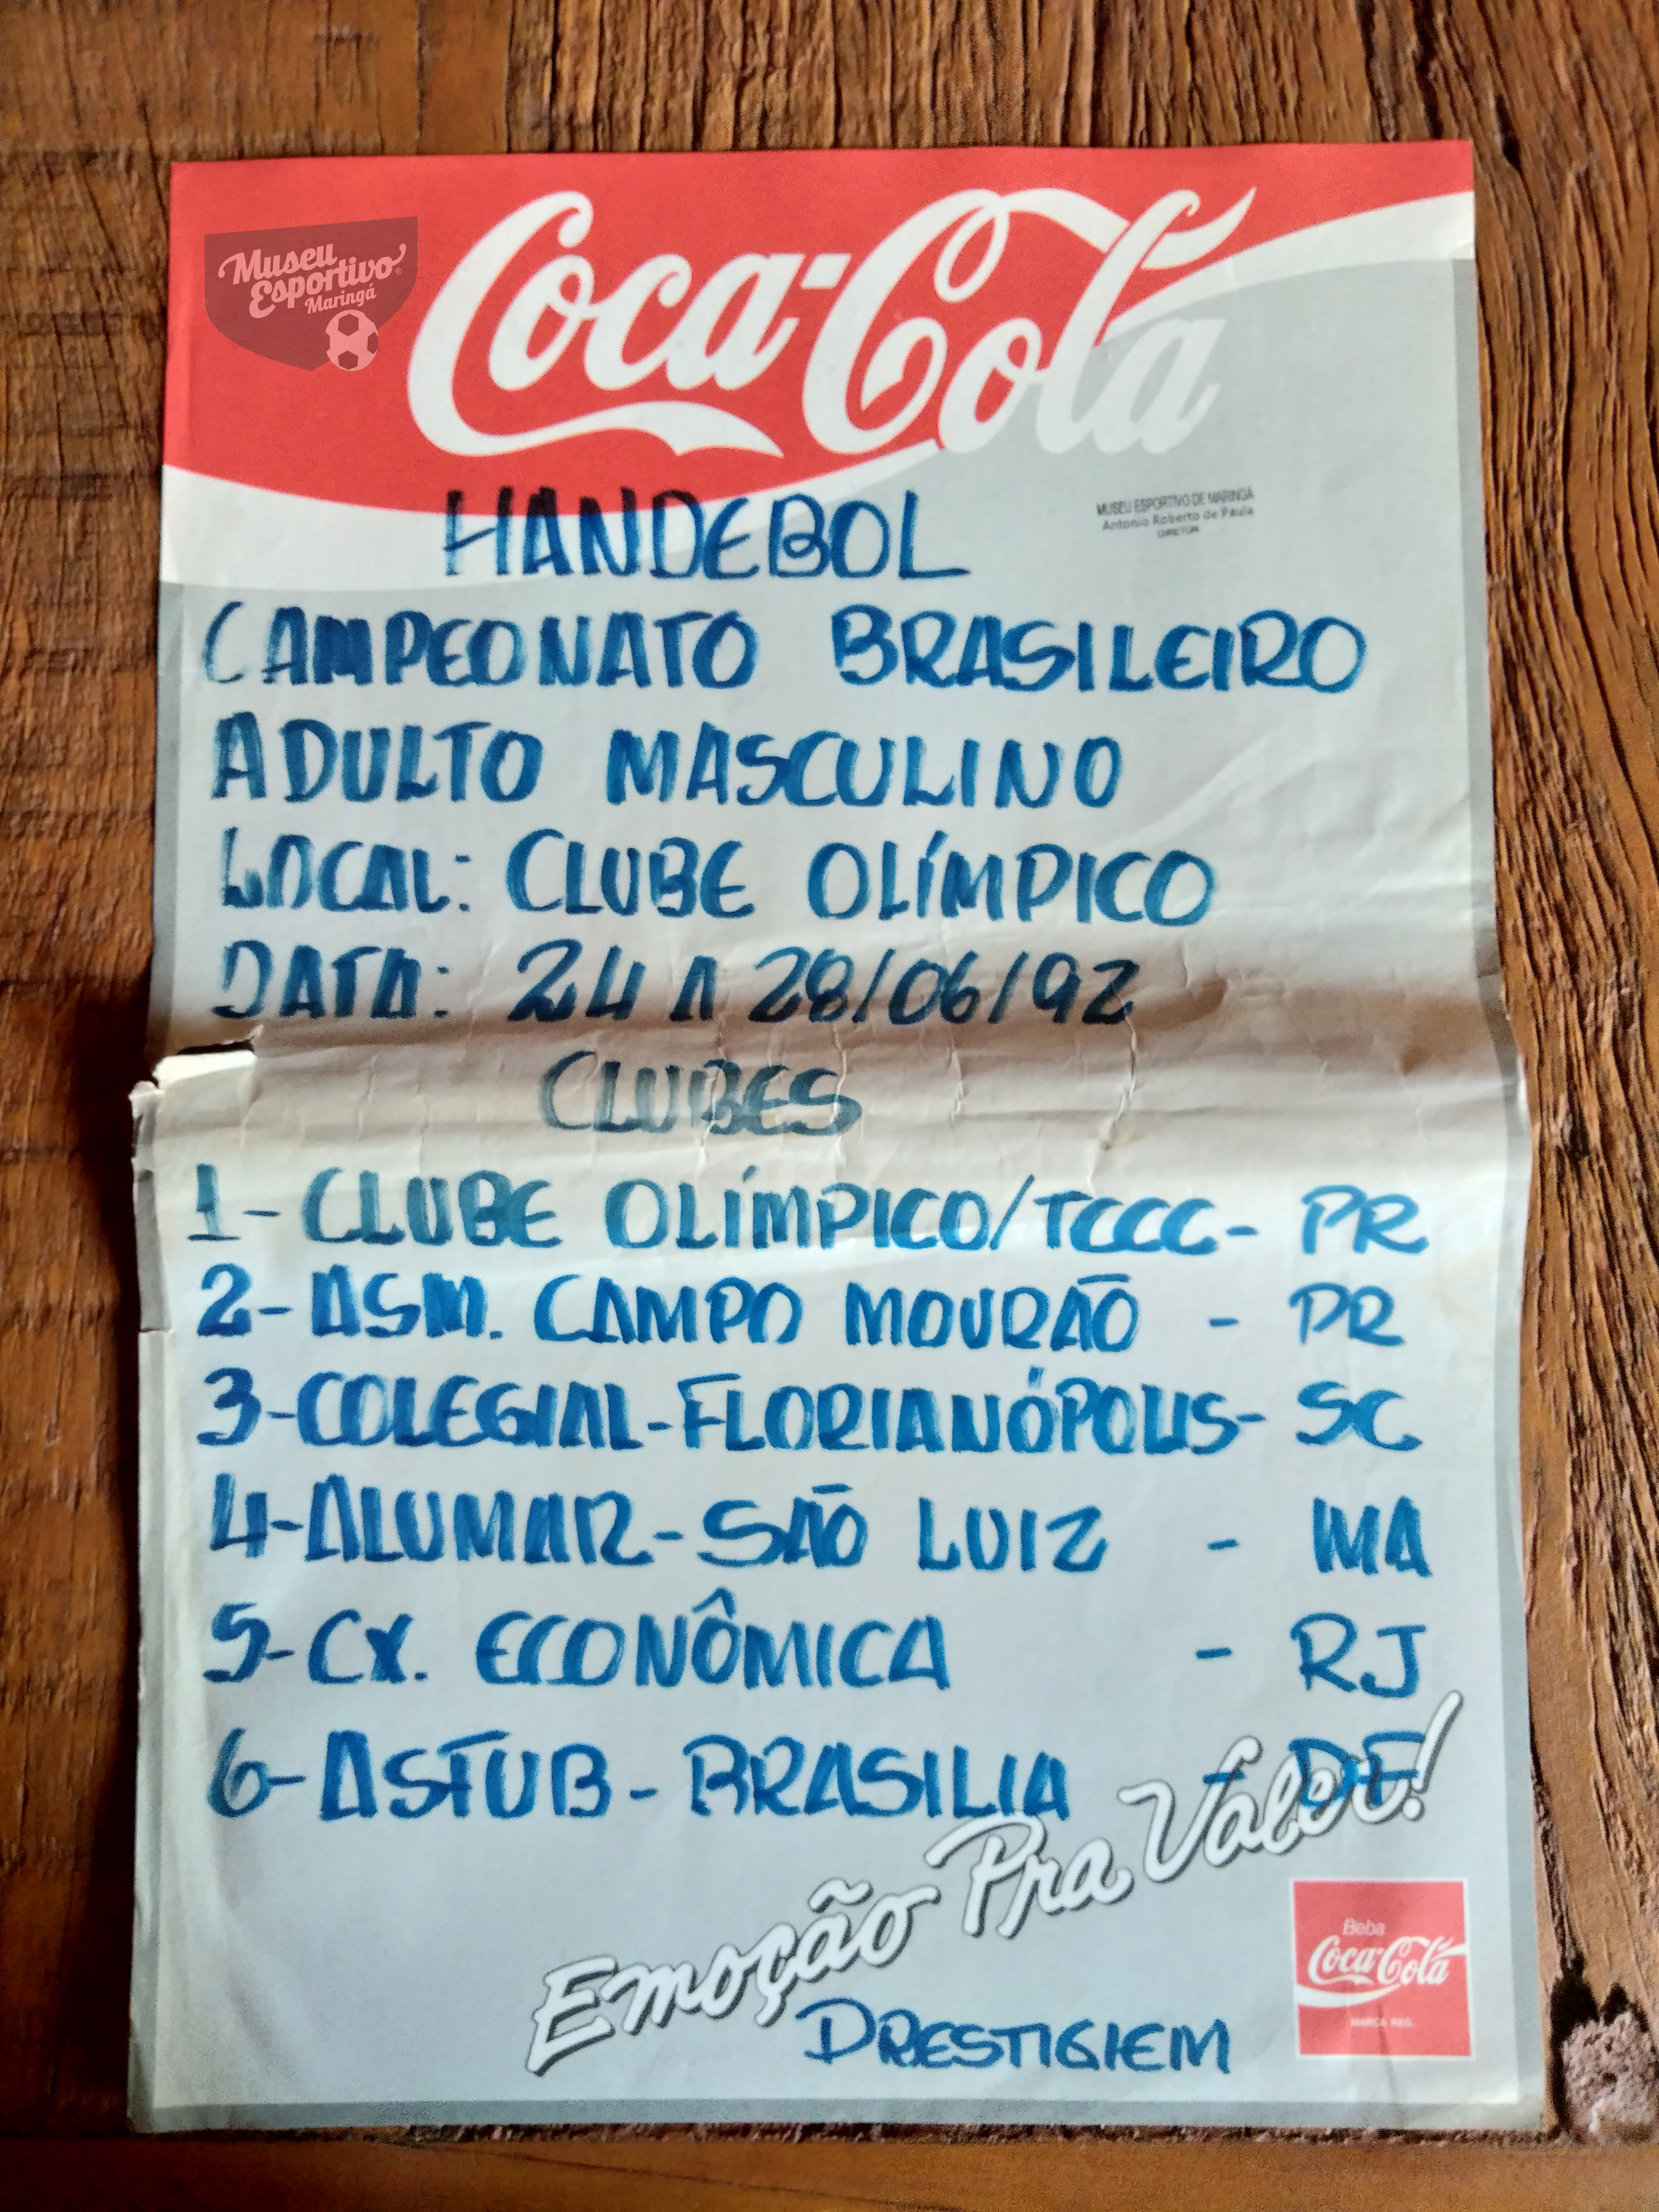 Museu
Esportivo
Maringá
Coca-Cola
MUSEU ESPORTIVO DE MARINGÁ
Antonio Roberto de Paula
DIRETOR
HANDEBOL
CAMPEONATO BRASILEIRO
ADULTO MASCULINO
LOCAL: CLUBE OLÍMPICO
DATA: 24 A 28/06/92
CLUBES
1- CLUBE OLÍMPICO/TCCC- PR
2- ASM. CAMPO MOURÃO - PR
3-COLEGIAL-FLORIANÓPOLIS- SC
4-ALUMAR-SÃO LUIZ - MA
5-CX. ECONÔMICA - RJ
6-ASTUB-BRASILIA - DF
Emoção Pra Valer!
Beba
Coca-Cola
MARCA REG.
PRESTIGIEM